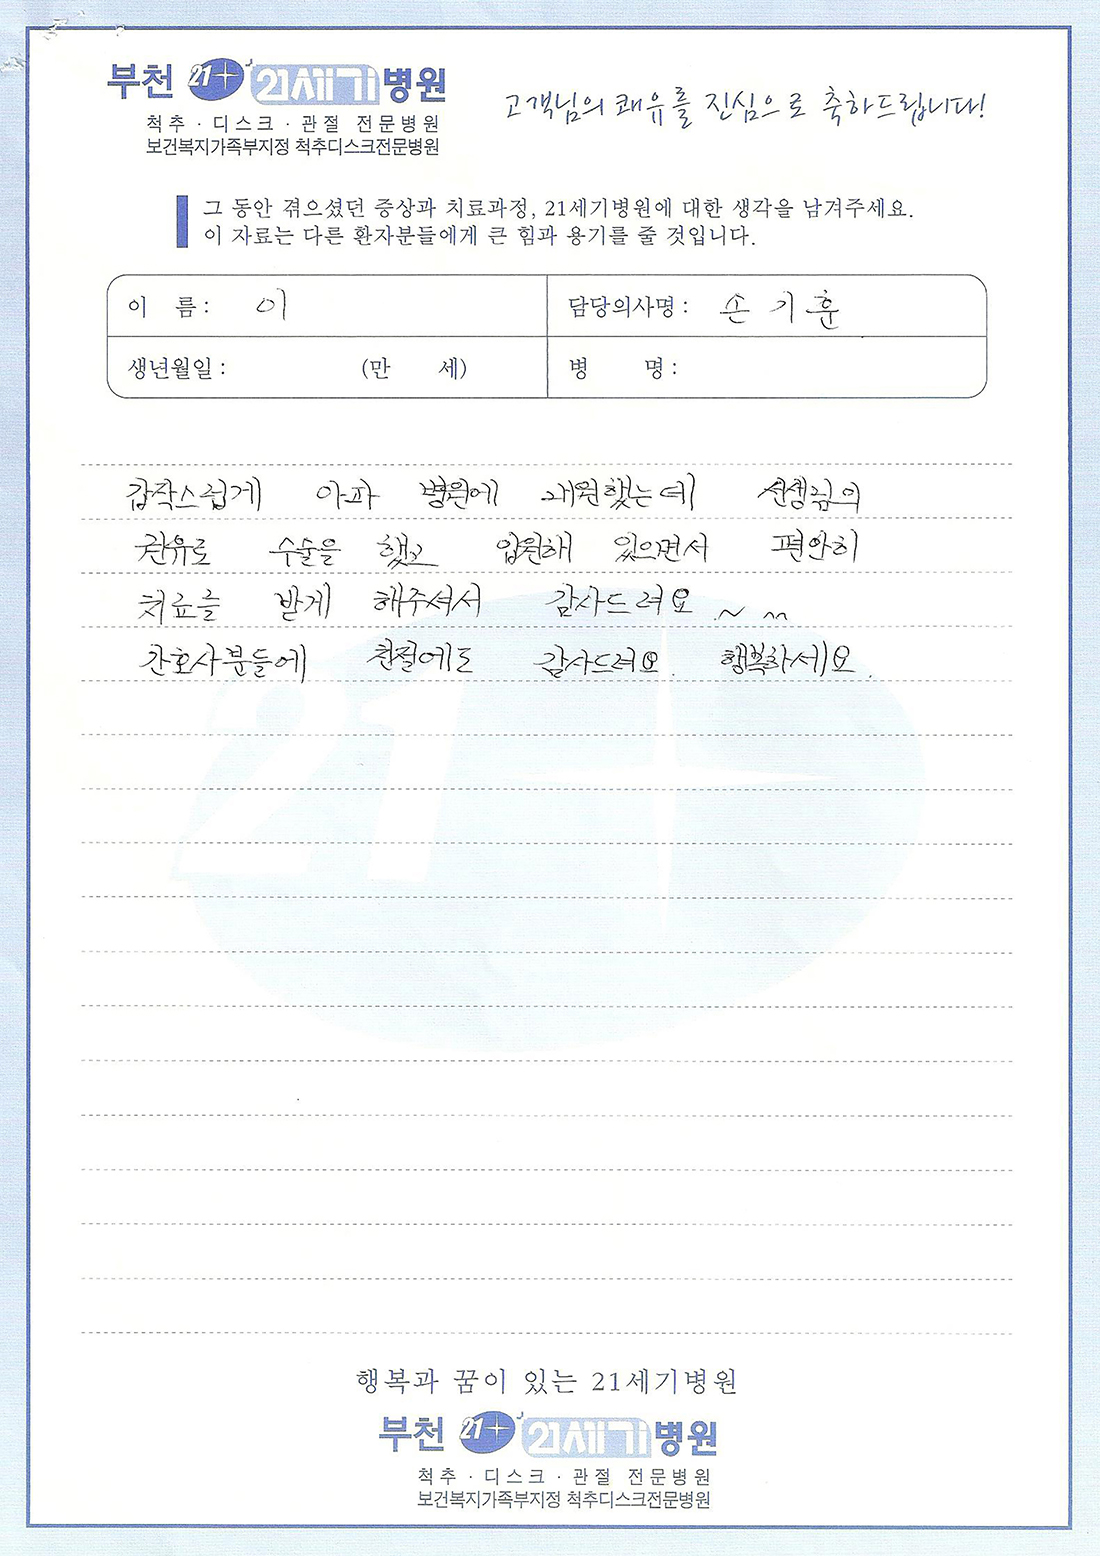 부천 21+ 21세기병원
척추 · 디스크 · 관절 전문병원
보건복지가족부지정 척추디스크전문병원
고객님의 쾌유를 진심으로 축하드립니다!
그 동안 겪으셨던 증상과 치료과정, 21세기병원에 대한 생각을 남겨주세요.
이 자료는 다른 환자분들에게 큰 힘과 용기를 줄 것입니다.
이 름 : 이
담당의사명 : 손기훈
생년월일 : (만 세)
병 명 :
갑작스럽게 아파 병원에 내원했는데 선생님의
권유로 수술을 했고 입원해 있으면서 편안히
치료를 받게 해주셔서 감사드려요 ~ ^^
간호사분들에 친절에도 감사드려요. 행복하세요.
21+
행복과 꿈이 있는 21세기병원
부천 21+ 21세기병원
척추 · 디스크 · 관절 전문병원
보건복지가족부지정 척추디스크전문병원